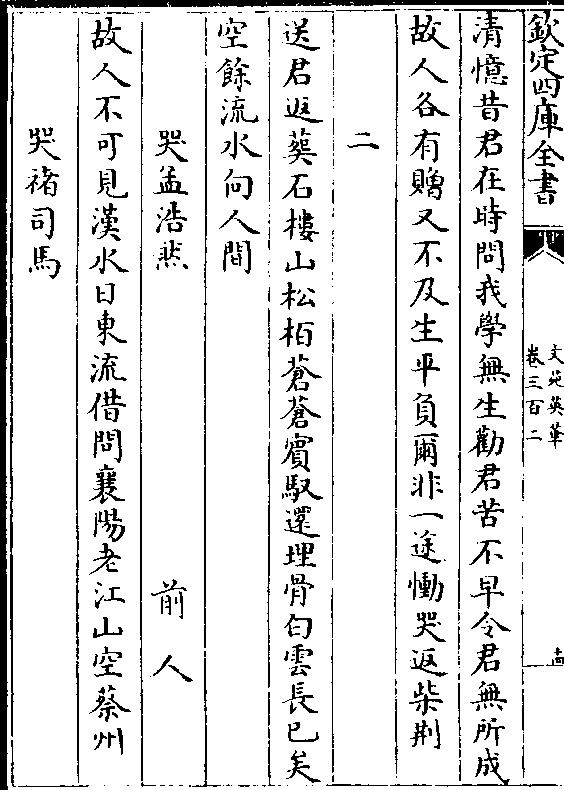 欽定四庫全書
文苑英華
卷三百二
十四
清憶昔君在時問我學無生勸君苦不早令君無所成
故人各有贈又不及生平負爾非一途慟哭返柴荆
二
送君返葬石樓山松栢蒼蒼賓馭還埋骨白雲長已矣
空餘流水向人間
哭孟浩然 前人
故人不可見漢水日東流借問襄陽老江山空蔡州
哭褚司馬